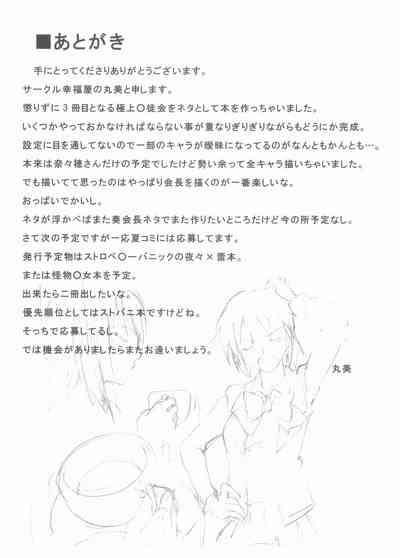 ■あとがき
手にとってくださりありがとうございます。
サークル幸福屋の丸美と申します。
懲りずに3冊目となる極上〇徒会をネタとして本を作っちゃいました。
いくつかやっておかなければならない事が重なりぎりぎりながらもどうにか完成。
設定に目を通してないので一部のキャラが曖昧になってるのがなんともかんとも…。
本来は奈々穂さんだけの予定でしたけど勢い余って全キャラ描いちゃいました。
でも描いてて思ったのはやっぱり会長を描くのが一番楽しいな。
おっぱいでかいし。
ネタが浮かべばまた奏会長ネタでまた作りたいところだけど今の所予定なし。
さて次の予定ですが一応夏コミには応募してます。
発行予定物はストロベ〇ーパニックの夜々×蕾本。
または怪物〇女本を予定。
出来たら二冊出したいな。
優先順位としてはストパニ本ですけどね。
そっちで応募してるし。
では機会がありましたらまたお逢いしましょう。
丸美